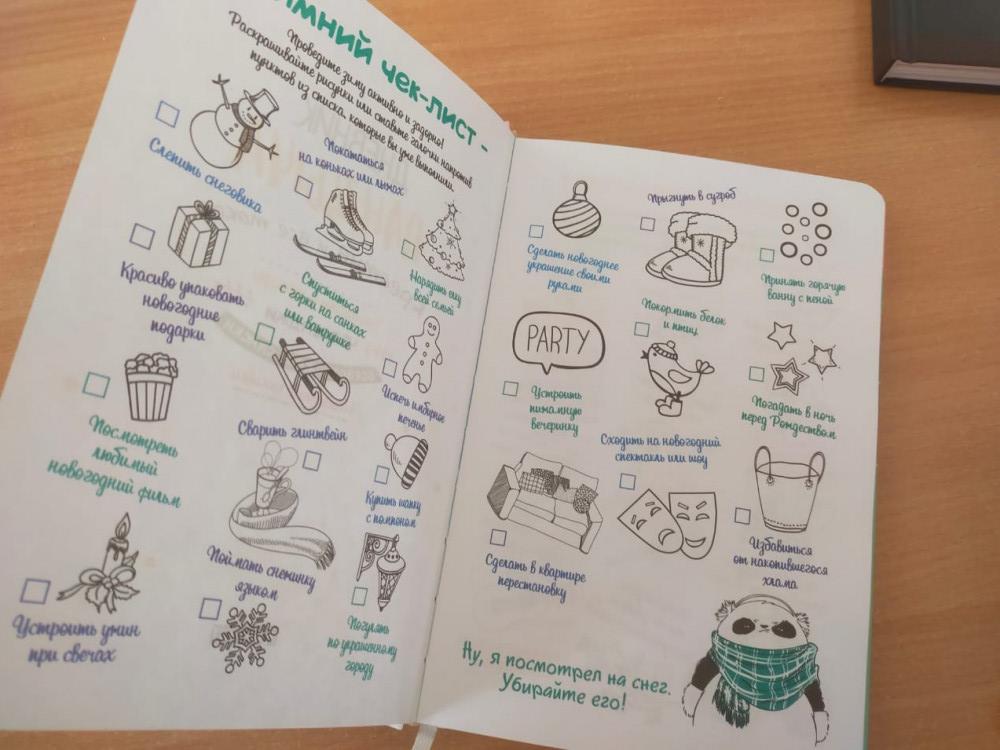 ЗИМНИЙ ЧЕК-ЛИСТ -
Проведите зиму активно и задорно!
Раскрашивайте рисунки или ставьте галочки напротив
пунктов из списка, которые вы уже выполнили.
Слепить снеговика
Покататься
на коньках или лыжах
Нарядить ёлку
всей семьёй
Красиво упаковать
новогодние
подарки
Спуститься
с горки на санках
или ватрушке
Испечь имбирное
печенье
Посмотреть
любимый
новогодний фильм
Сварить глинтвейн
Купить шапку
с помпоном
Устроить ужин
при свечах
Поймать снежинку
языком
Погулять
по украшенному
городу
Сделать новогоднее
украшение своими
руками
Прыгнуть в сугроб
Принять горячую
ванну с пеной
PARTY
Устроить
пижамную
вечеринку
Покормить белок
и птиц
Погадать в ночь
перед Рождеством
Сделать в квартире
перестановку
Сходить на новогодний
спектакль или шоу
Избавиться
от накопившегося
хлама
Ну, я посмотрел на снег.
Убирайте его!